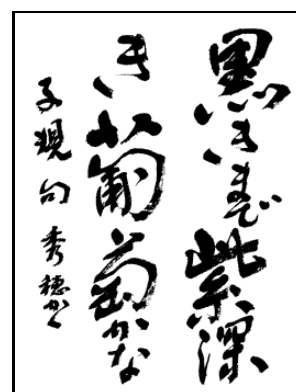 黒きまで紫深
き葡萄かな
子規句 秀穂かく